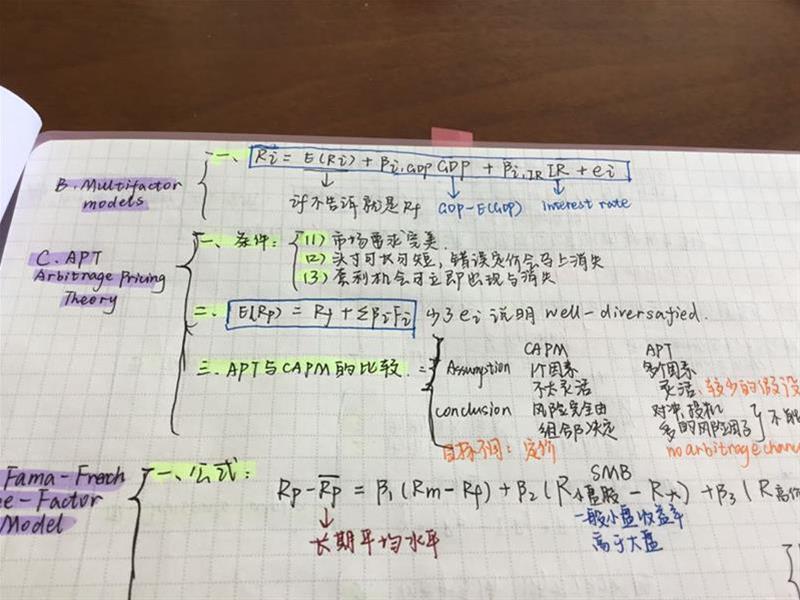 B. Multifactor models
一、 Ri = E(Ri) + βi,GDP GDP + βi,IR IR + ei
讨不告诉就是Rf GDP-E(GDP) interest rate
C. APT
Arbitrage Pricing
Theory
一、条件: (1) 市场需求完美.
(2) 头寸可长可短, 错误定价会马上消失
(3) 套利机会可立即出现与消失
二、 E(Rp) = Rf + Σβi Fi 少了ei 说明 well-diversafied.
三、APT与CAPM的比较. =
CAPM APT
Assumption 1个因素 多个因素
不太灵活 灵活、较少的假设
conclusion 风险完全由 对冲、投机
组合β决定 多的风险因子
目标不同: 定价 no arbitrage chance
Fama-French
e-Factor
Model
一、公式:
SMB
Rp - Rp = β1 (Rm - Rf) + β2 (R小盘股 - R大) + β3 (R高价
长期平均水平
一般小盘收益率
高于大盘